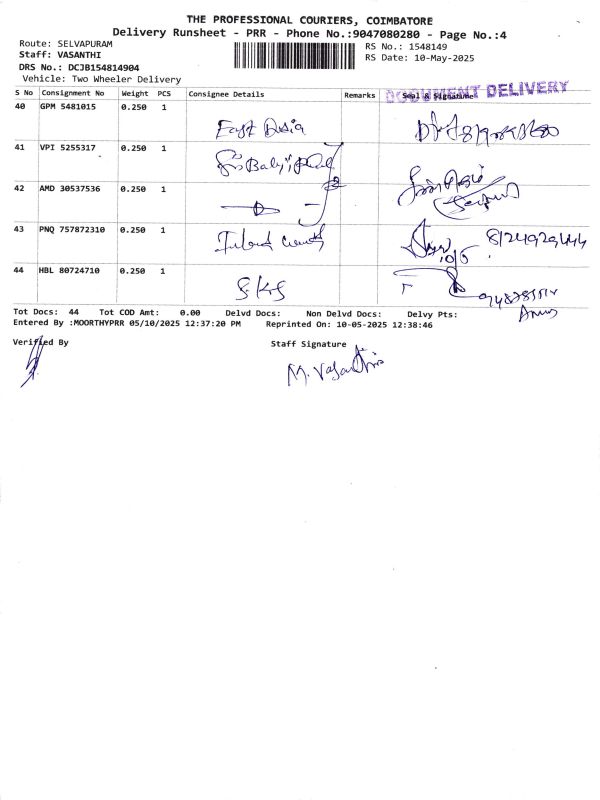 THE PROFESSIONAL COURIERS, COIMBATORE
Delivery Runsheet - PRR - Phone No.:9047080280 - Page No.:4
Route: SELVAPURAM
Staff: VASANTHI
DRS No.: DCJB154814904
Vehicle: Two Wheeler Delivery
RS No.: 1548149
RS Date: 10-May-2025
S No Consignment No Weight PCS Consignee Details Remarks Seal & Signature
DOCUMENT DELIVERY
40 GPM 5481015 0.250 1
41 VPI 5255317 0.250 1
42 AMD 30537536 0.250 1
43 PNQ 757872310 0.250 1 8124929444
10/5
44 HBL 80724710 0.250 1 SKS
Tot Docs: 44 Tot COD Amt: 0.00 Delvd Docs: Non Delvd Docs: Delvy Pts:
Entered By :MOORTHYPRR 05/10/2025 12:37:20 PM Reprinted On: 10-05-2025 12:38:46
Verified By Staff Signature
M. Vasanthi